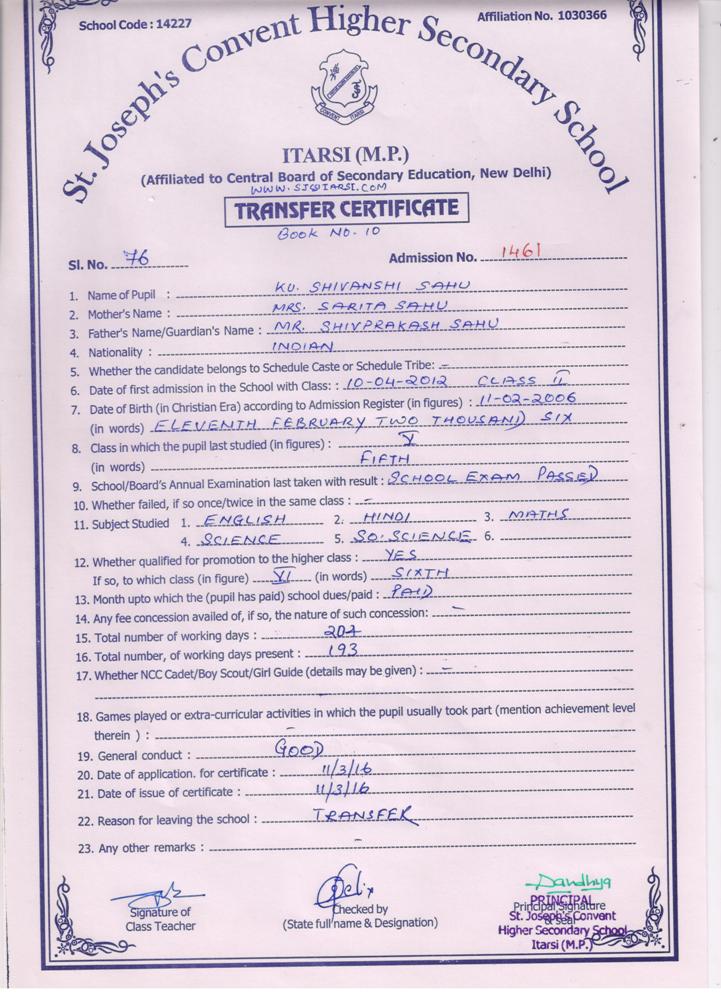 School Code : 14227
Affiliation No. 1030366
St. Joseph's Convent Higher Secondary School
CONVENT ITARSI
ITARSI (M.P.)
(Affiliated to Central Board of Secondary Education, New Delhi)
WWW.SJSITARSI.COM
TRANSFER CERTIFICATE
BOOK NO. 10
Sl. No. 76 Admission No. 1461
1. Name of Pupil : KU. SHIVANSHI SAHU
2. Mother's Name : MRS. SARITA SAHU
3. Father's Name/Guardian's Name : MR. SHIVPRAKASH SAHU
4. Nationality : INDIAN
5. Whether the candidate belongs to Schedule Caste or Schedule Tribe: –
6. Date of first admission in the School with Class: : 10-04-2012 CLASS II
7. Date of Birth (in Christian Era) according to Admission Register (in figures) : 11-02-2006
(in words) ELEVENTH FEBRUARY TWO THOUSAND SIX
8. Class in which the pupil last studied (in figures) : V
(in words) FIFTH
9. School/Board's Annual Examination last taken with result : SCHOOL EXAM PASSED
10. Whether failed, if so once/twice in the same class : –
11. Subject Studied 1. ENGLISH 2. HINDI 3. MATHS
4. SCIENCE 5. SO. SCIENCE 6.
12. Whether qualified for promotion to the higher class : YES
If so, to which class (in figure) VI (in words) SIXTH
13. Month upto which the (pupil has paid) school dues/paid : PAID
14. Any fee concession availed of, if so, the nature of such concession: –
15. Total number of working days : 207
16. Total number, of working days present : 193
17. Whether NCC Cadet/Boy Scout/Girl Guide (details may be given) : –
18. Games played or extra-curricular activities in which the pupil usually took part (mention achievement level
therein ) : –
19. General conduct : GOOD
20. Date of application. for certificate : 11/3/16
21. Date of issue of certificate : 11/3/16
22. Reason for leaving the school : TRANSFER
23. Any other remarks : –
Signature of
Class Teacher
Checked by
(State full name & Designation)
Principal Signature
& seal
PRINCIPAL
St. Joseph's Convent
Higher Secondary School
Itarsi (M.P.)